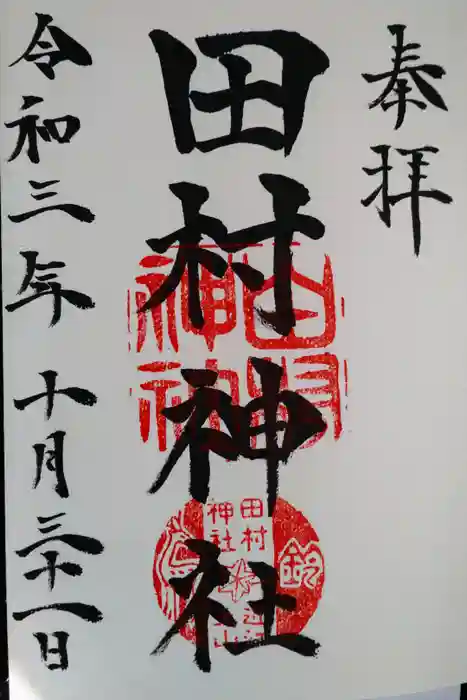 奉拝
田村神社
令和三年十月三十一日
田村神社
田村
神社
鈴